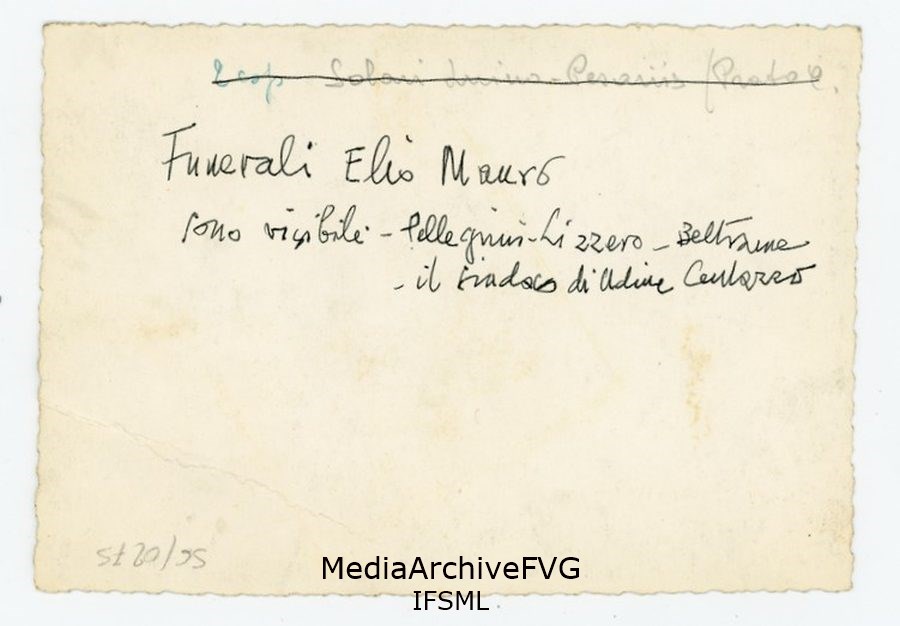 2 cop Solari Luina - Pesariis (Prato C.
Funerali Elio Mauro
sono visibili - Pellegrini - Lizzero - Beltrame
- il sindaco di Udine Centazzo
MediaArchiveFVG
IFSML